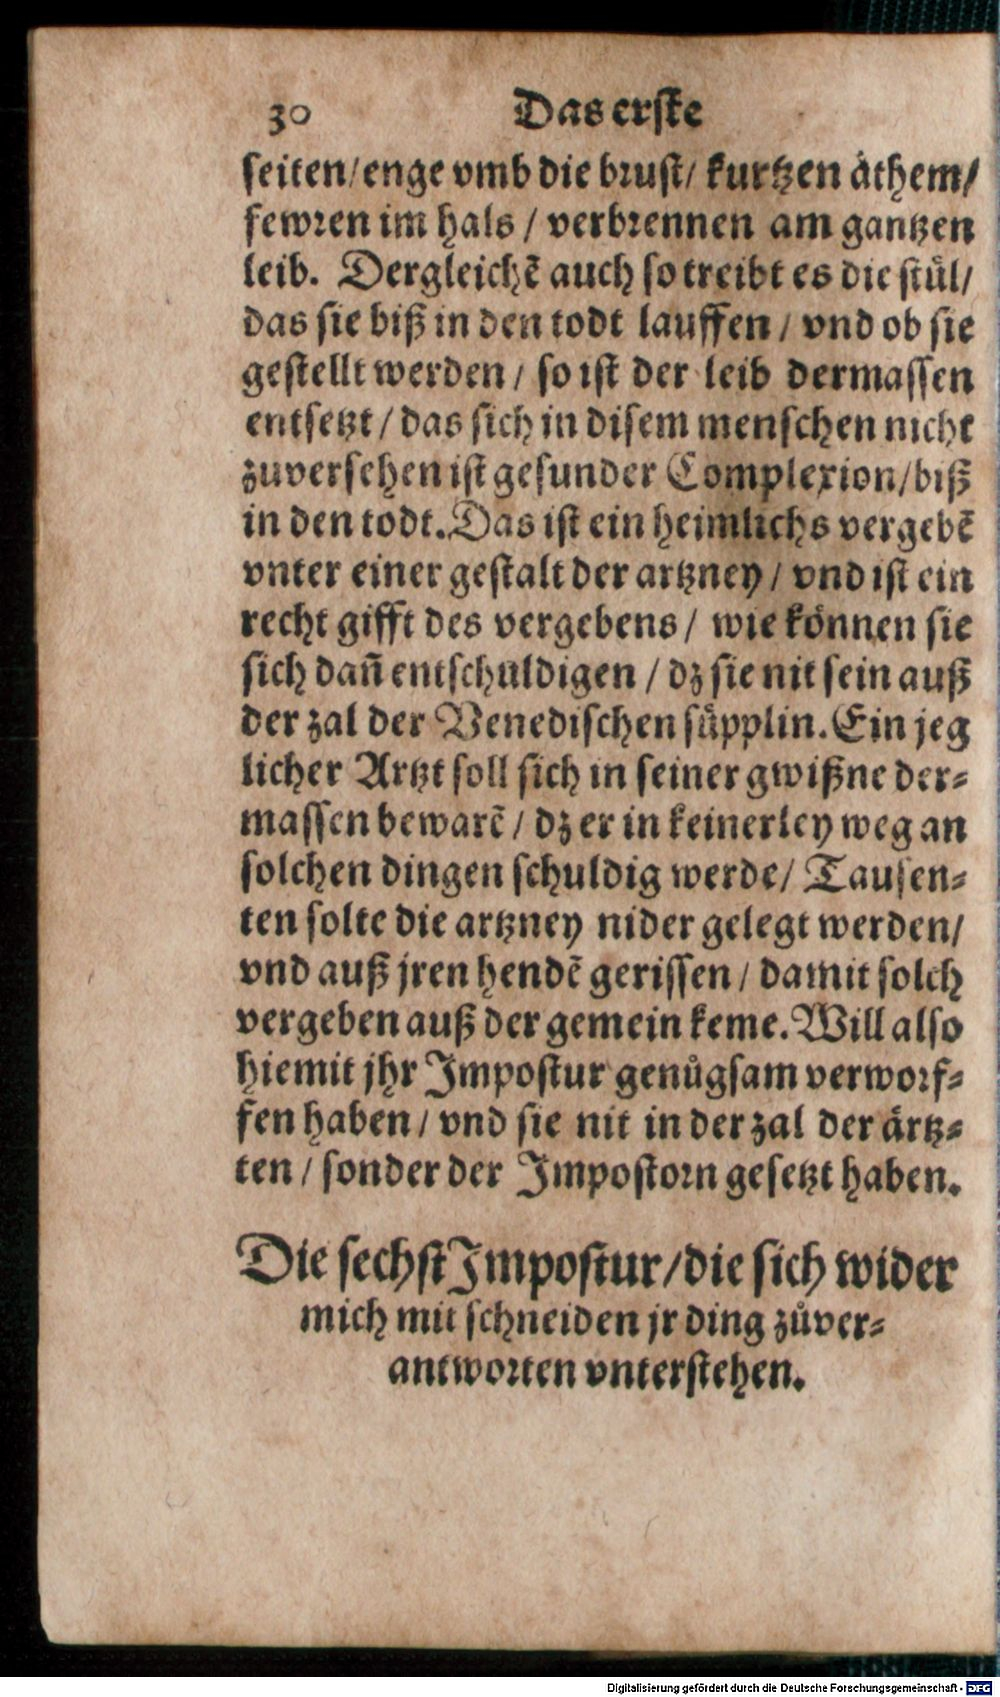 30 Das erste
seiten/enge vmb die brust/ kurtzen åthem/
fewren im hals / verbrennen am gantzen
leib. Dergleichẽ auch so treibt es die stůl/
das sie biß in den todt lauffen / vnd ob sie
gestellt werden / so ist der leib dermassen
entsetzt / das sich in disem menschen nicht
zuversehen ist gesunder Complexion/biß
in den todt. Das ist ein heimlichs vergebẽ
vnter einer gestalt der artzney / vnd ist ein
recht gifft des vergebens / wie können sie
sich dañ entschuldigen / dz sie nit sein auß
der zal der Venedischen sůpplin. Ein jeg
licher Artzt soll sich in seiner gwißne der-
massen bewarẽ / dz er in keinerley weg an
solchen dingen schuldig werde/ Tausen-
ten solte die artzney nider gelegt werden/
vnd auß jren hendẽ gerissen / damit solch
vergeben auß der gemein keme. Will also
hiemit jhr Impostur genůgsam verworf-
fen haben / vnd sie nit in der zal der ärtz-
ten / sonder der Impostorn gesetzt haben.
Die sechst Impostur/die sich wider
mich mit schneiden jr ding zůver-
antworten vnterstehen.
Digitalisierung gefördert durch die Deutsche Forschungsgemeinschaft - DFG